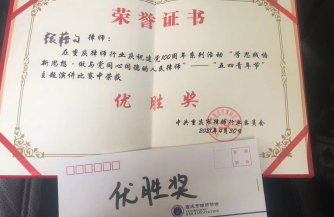 荣誉证书
律师：
在重庆律师行业庆祝建党100周年系列活动“学思践悟
新思想·做与党同心同德的人民律师”——“五四青年节”
主题演讲比赛中荣获
优胜奖
中共重庆市律师行业委员会
优胜奖
重庆市律师协会